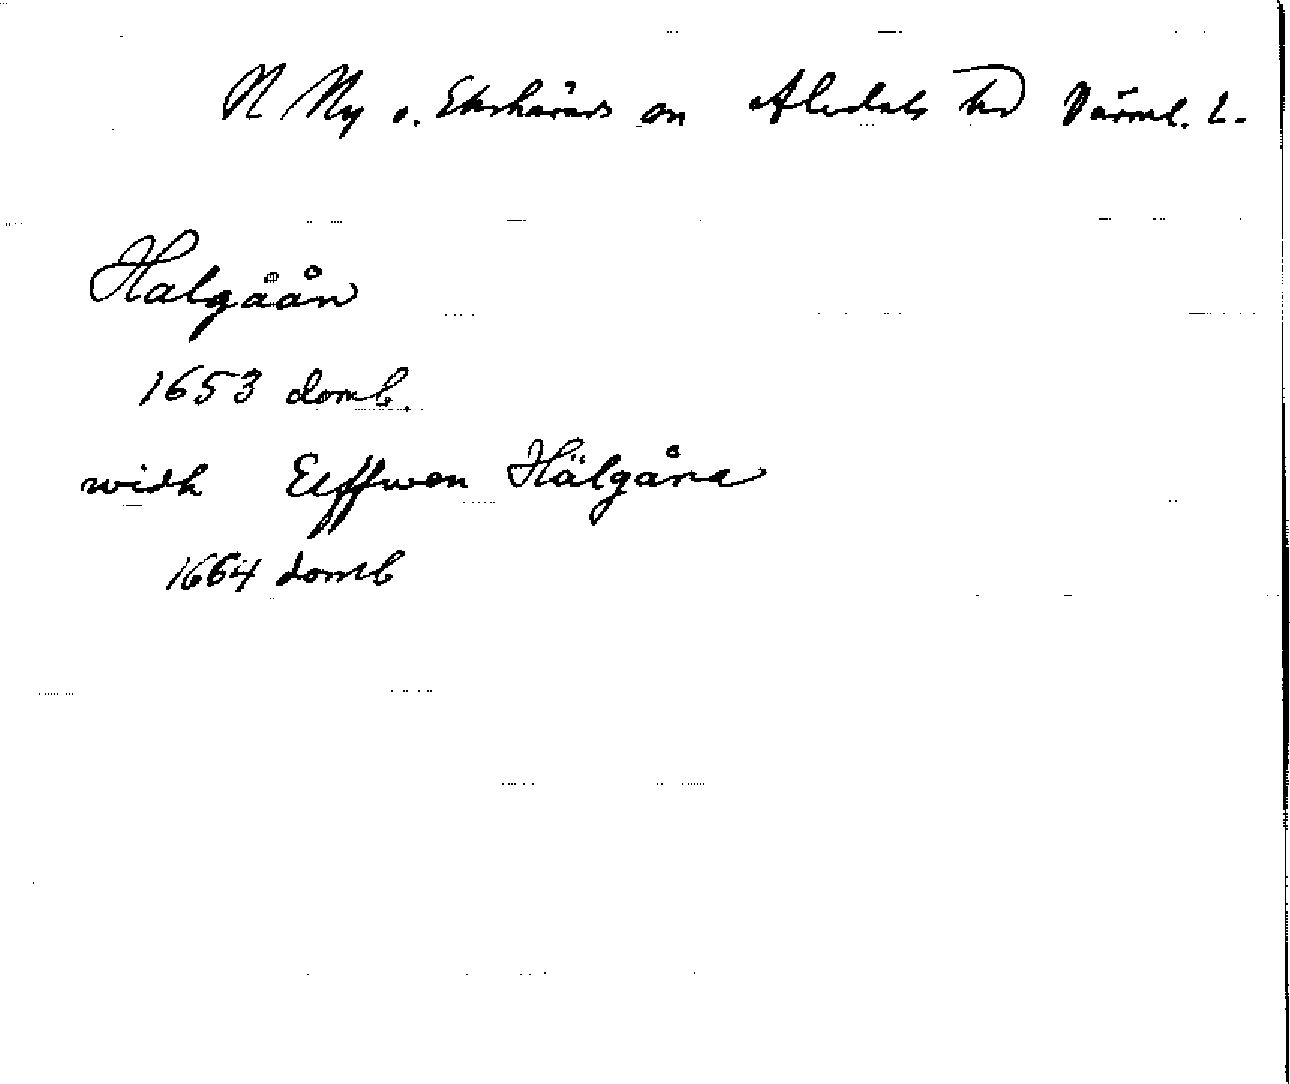 N Ny o. Ekshärads sn Älvdals hd Värml. L.
Halgåån
1653 domb.
widh Elffwen Hälgåna
1664 domb